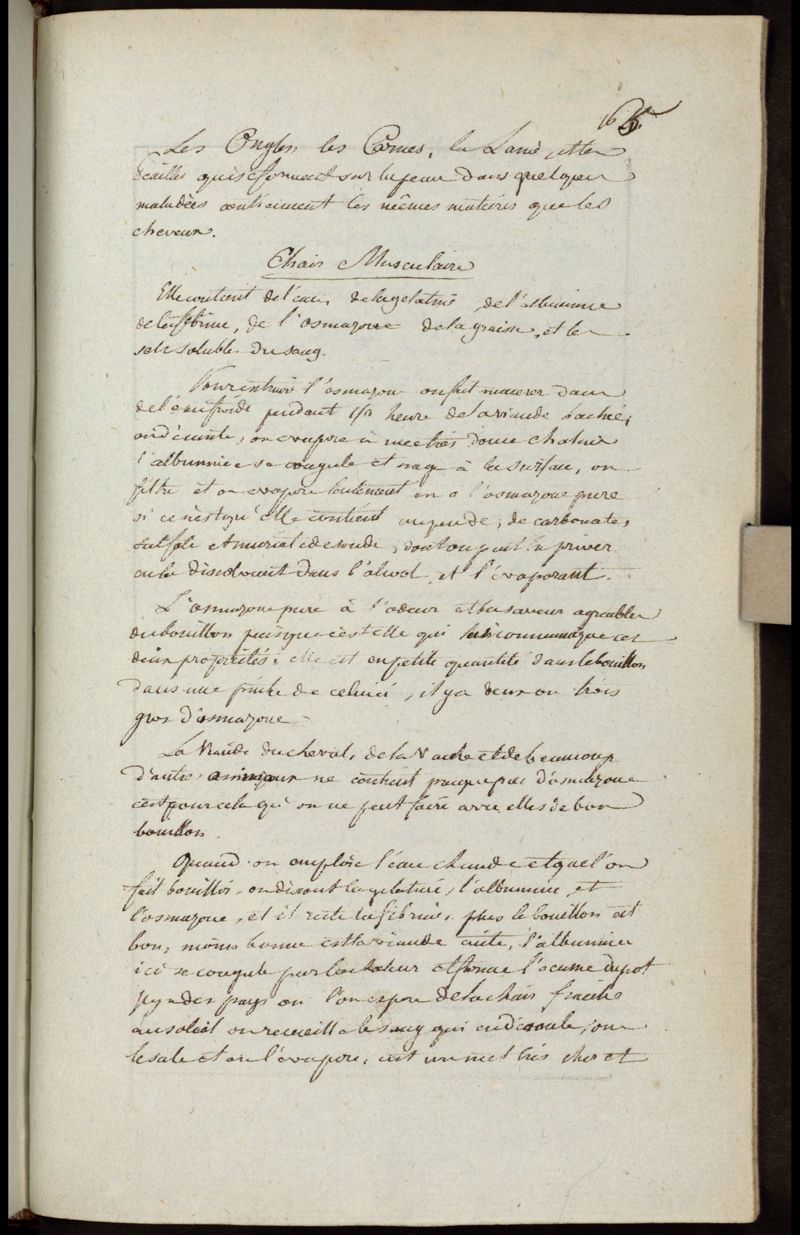 165.
Les Ongles les Cornes, la Laine, et les
Ecailles qui se forment sur la peau dans quelques
maladies contiennent les mêmes matieres que les
cheveux.
Chair Musculaire
Elle contient de l'eau, de la gelatine, de l'albumine
de la fibrine, de l'osmazone de la graisse, et les
sels soluble du sang.
Pour extraire l'osmazone on fait macerer dans
de l'eau froide pendant 1/2 heure de la viande hachée,
on decante, on evapore à une très douce chaleur
l'albumine se coagule et nage à la surface, on
filtre et on evapore lentement on a l'osmazone pure
si ce n'est qu'elle contient un peu de, de carbonate,
sulfate et muriate de soude, dont on peut la priver
en la dissolvant dans l'alcool, et l'évaporant.
L'osmazone pure à l'odeur et la saveur agreable
du bouillon puisque c'est elle qui lui communique ces
deux propriétés; elle est en petite quantité dans le bouillon
dans une pinte de celui ci, il y a deux ou trois
gros d'osmazone.
La Viande du cheval, de la Vache et de beaucoup
d'autres animaux ne contient presque pas d'osmazone
c'est pour cela qu'on ne peut faire avec elles de bon
bouillon.
Quand on emploie l'eau chaude et que l'on
fait bouillir, on dissout la gelatine, l'albumine, et
l'osmazone, et il reste la fibrine. plus le bouillon est
bon, moins bonne est la viande cuite, l'albumine
ici se coagule par la chaleur et forme l'ecume du pot
Il y a des pays ou l'on expose de la chair fraiche
au soleil on recueille le suc qui en découle, on
le sale et on l'évapore, c'est un met très cher et